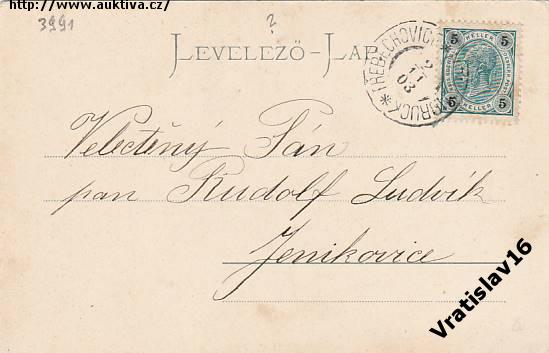 http://www.auktiva.cz/
3991
?
LEVELEZŐ-LAP
TŘEBECHOVICE
BRUCK
2
11
03
5 5
HELLER
5 HELLER 5
Velectěný Pán
pan Rudolf Ludvík
Jenikovice
Vratislav16